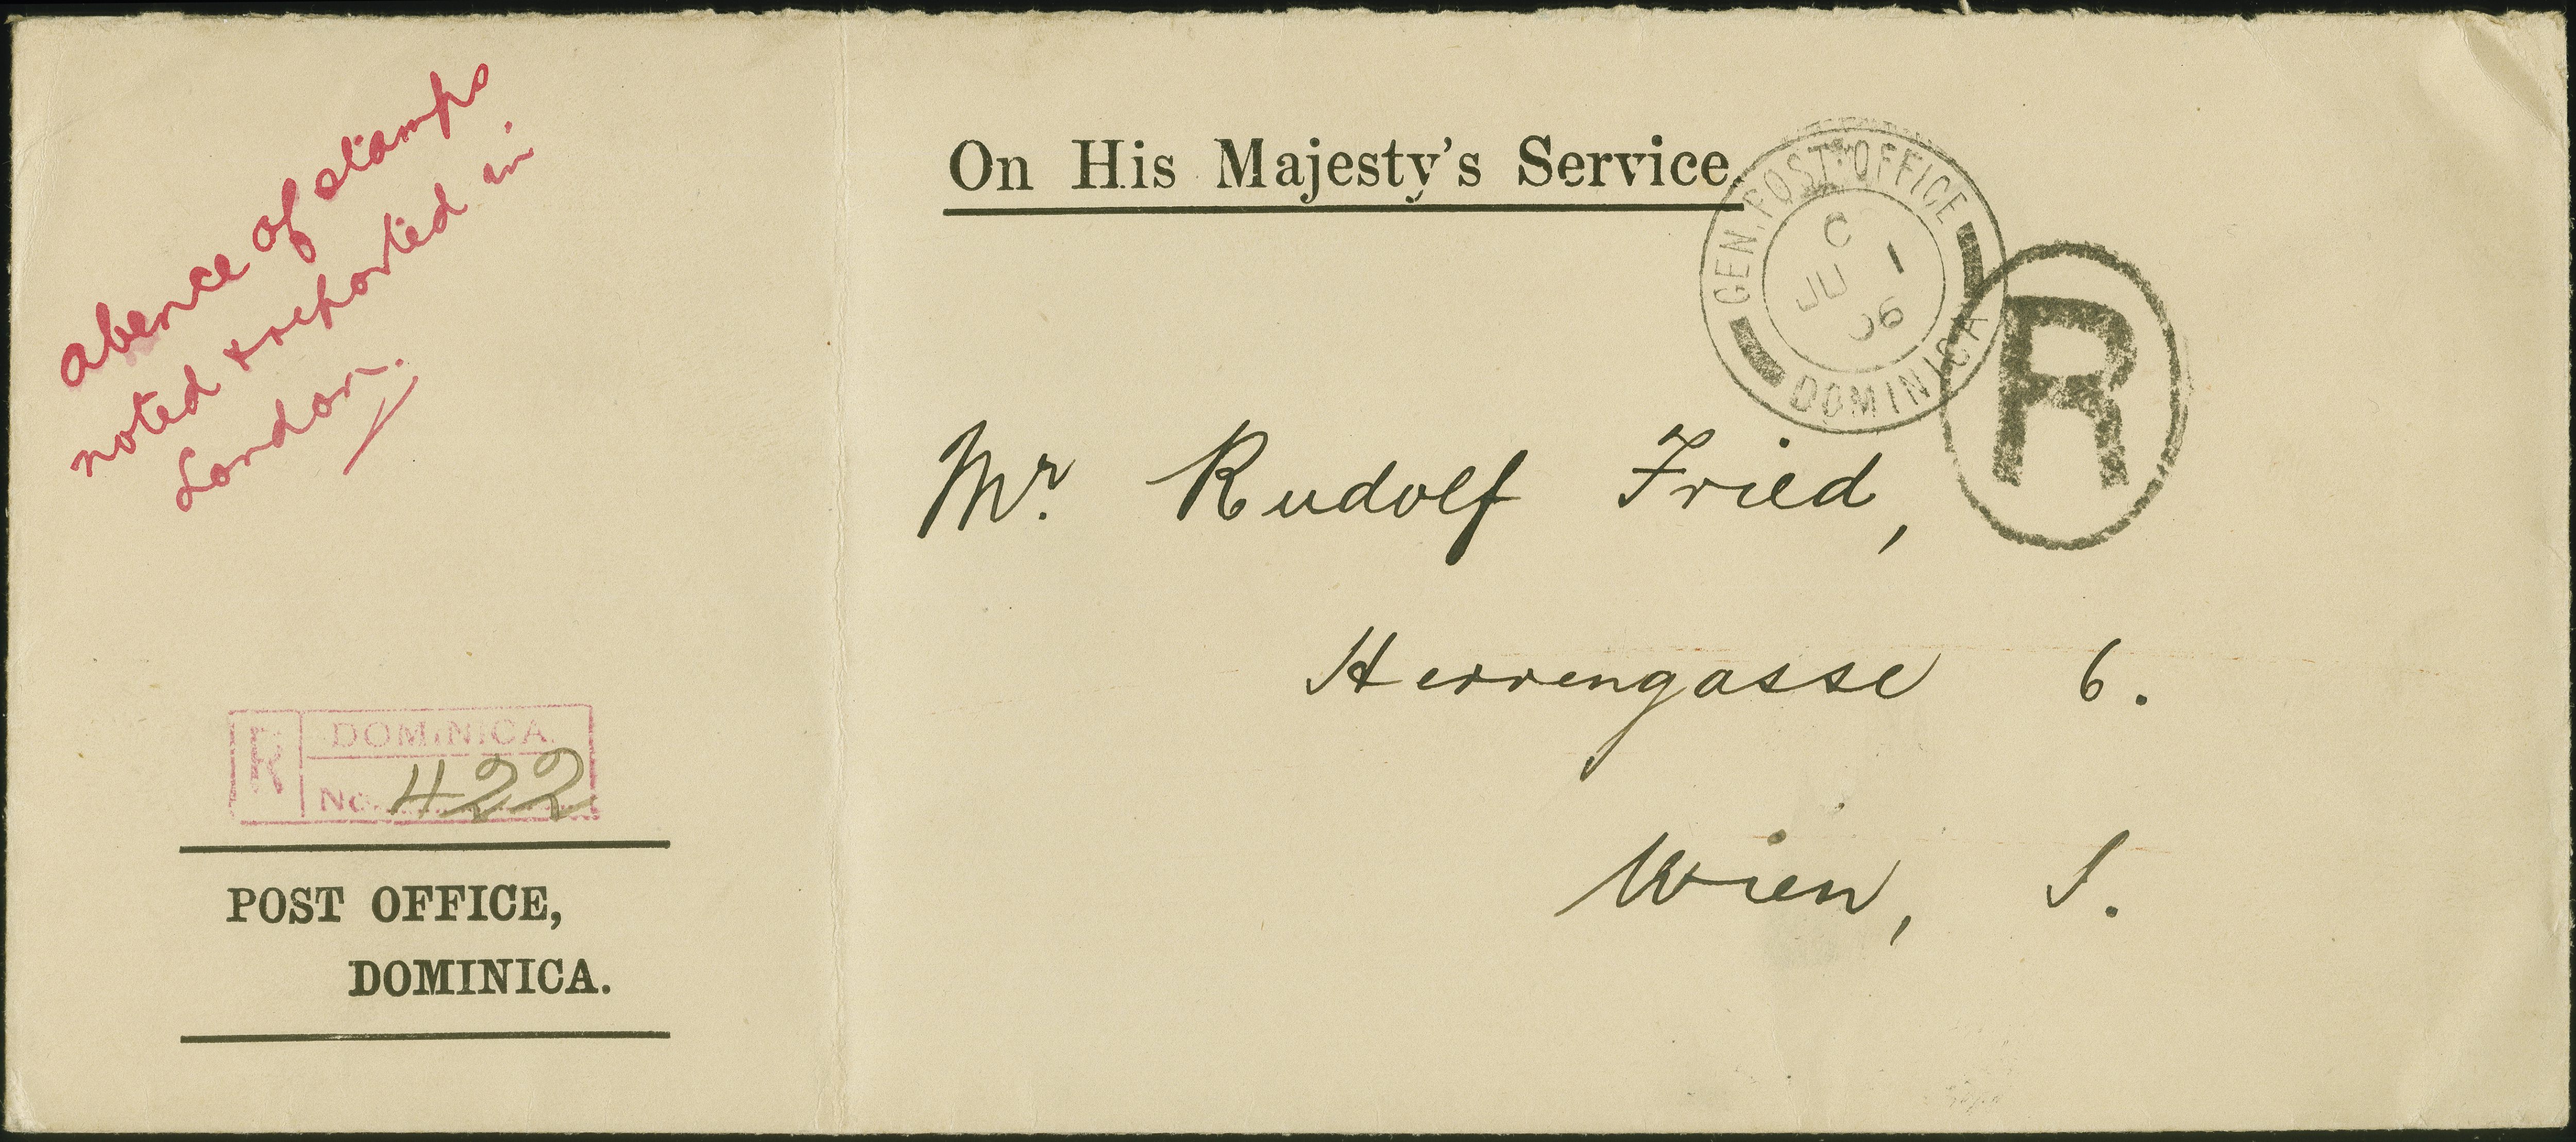 abence of stamps
noted + reported in
London.
On His Majesty's Service.
GEN. POST OFFICE
C
JU 1
06
DOMINICA
R
Mr. Rudolf Fried,
Herrengasse 6.
Wien, I.
R
DOMINICA.
No. 422
POST OFFICE,
DOMINICA.